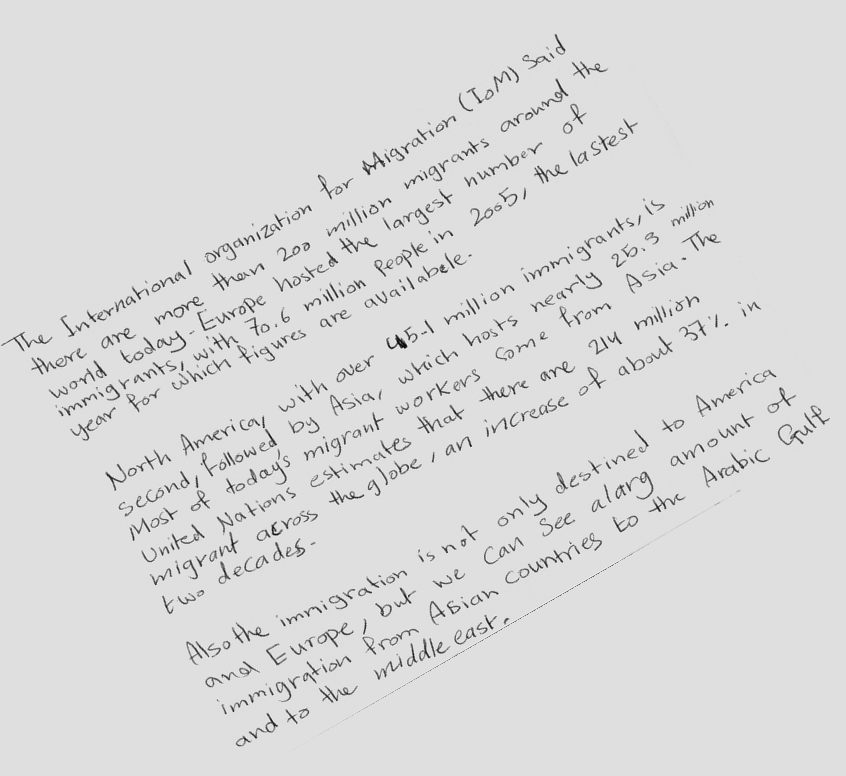 The International organization for Migration (IOM) Said
there are more than 200 million migrants around the
world today. Europe hosted the largest number of
immigrants, with 70.6 million People in 2005, the lastest
year for which figures are availabele.
North America, with over 45.1 million immigrants, is
second, followed by Asia, which hosts nearly 25.3 million
Most of today's migrant workers come from Asia. The
United Nations estimates that there are 214 million
migrant across the globe, an increase of about 37% in
two decades.
Also the immigration is not only destined to America
and Europe, but we can see alarg amount of
immigration from Asian countries to the Arabic Gulf
and to the middle east.